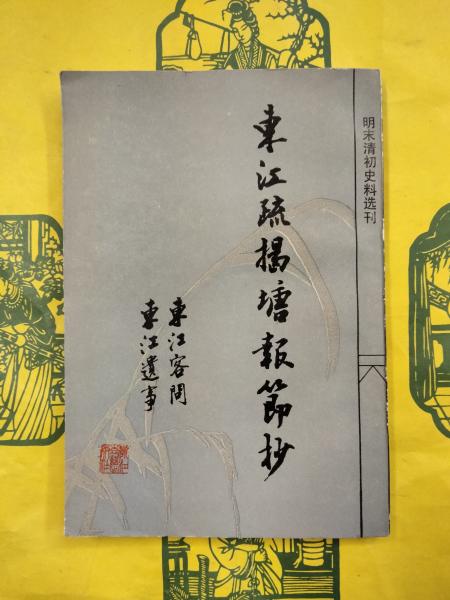 明末清初史料选刊
東江疏揭塘報節抄
東江客問
東江遺事